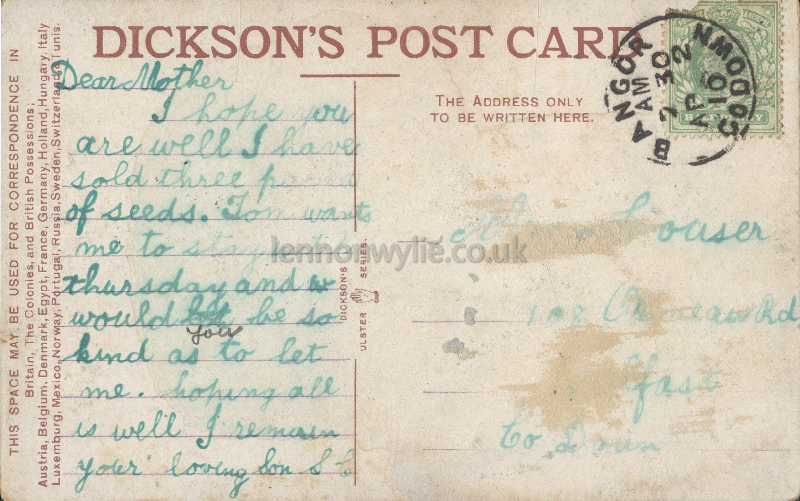 DICKSON'S POST CARD
THE ADDRESS ONLY
TO BE WRITTEN HERE.
THIS SPACE MAY BE USED FOR CORRESPONDENCE IN
Britain, The Colonies, and British Possessions;
Austria, Belgium, Denmark, Egypt, France, Germany, Holland, Hungary, Italy
Luxemburg, Mexico, Norway, Portugal, Russia, Sweden, Switzerland & Tunis.
Dear Mother
I hope you
are well I have
sold three
of seeds. Tom wants
me to stay
thursday and
would you be so
kind as to let
me. hoping all
is well I remain
your loving Son S
DICKSON'S
ULSTER SERIES.
BANGOR
AM
7 30
AP 15
CO DOWN
HALFPENNY
Houser
108 Ormeau Rd
fast
Co Down
lennonwylie.co.uk